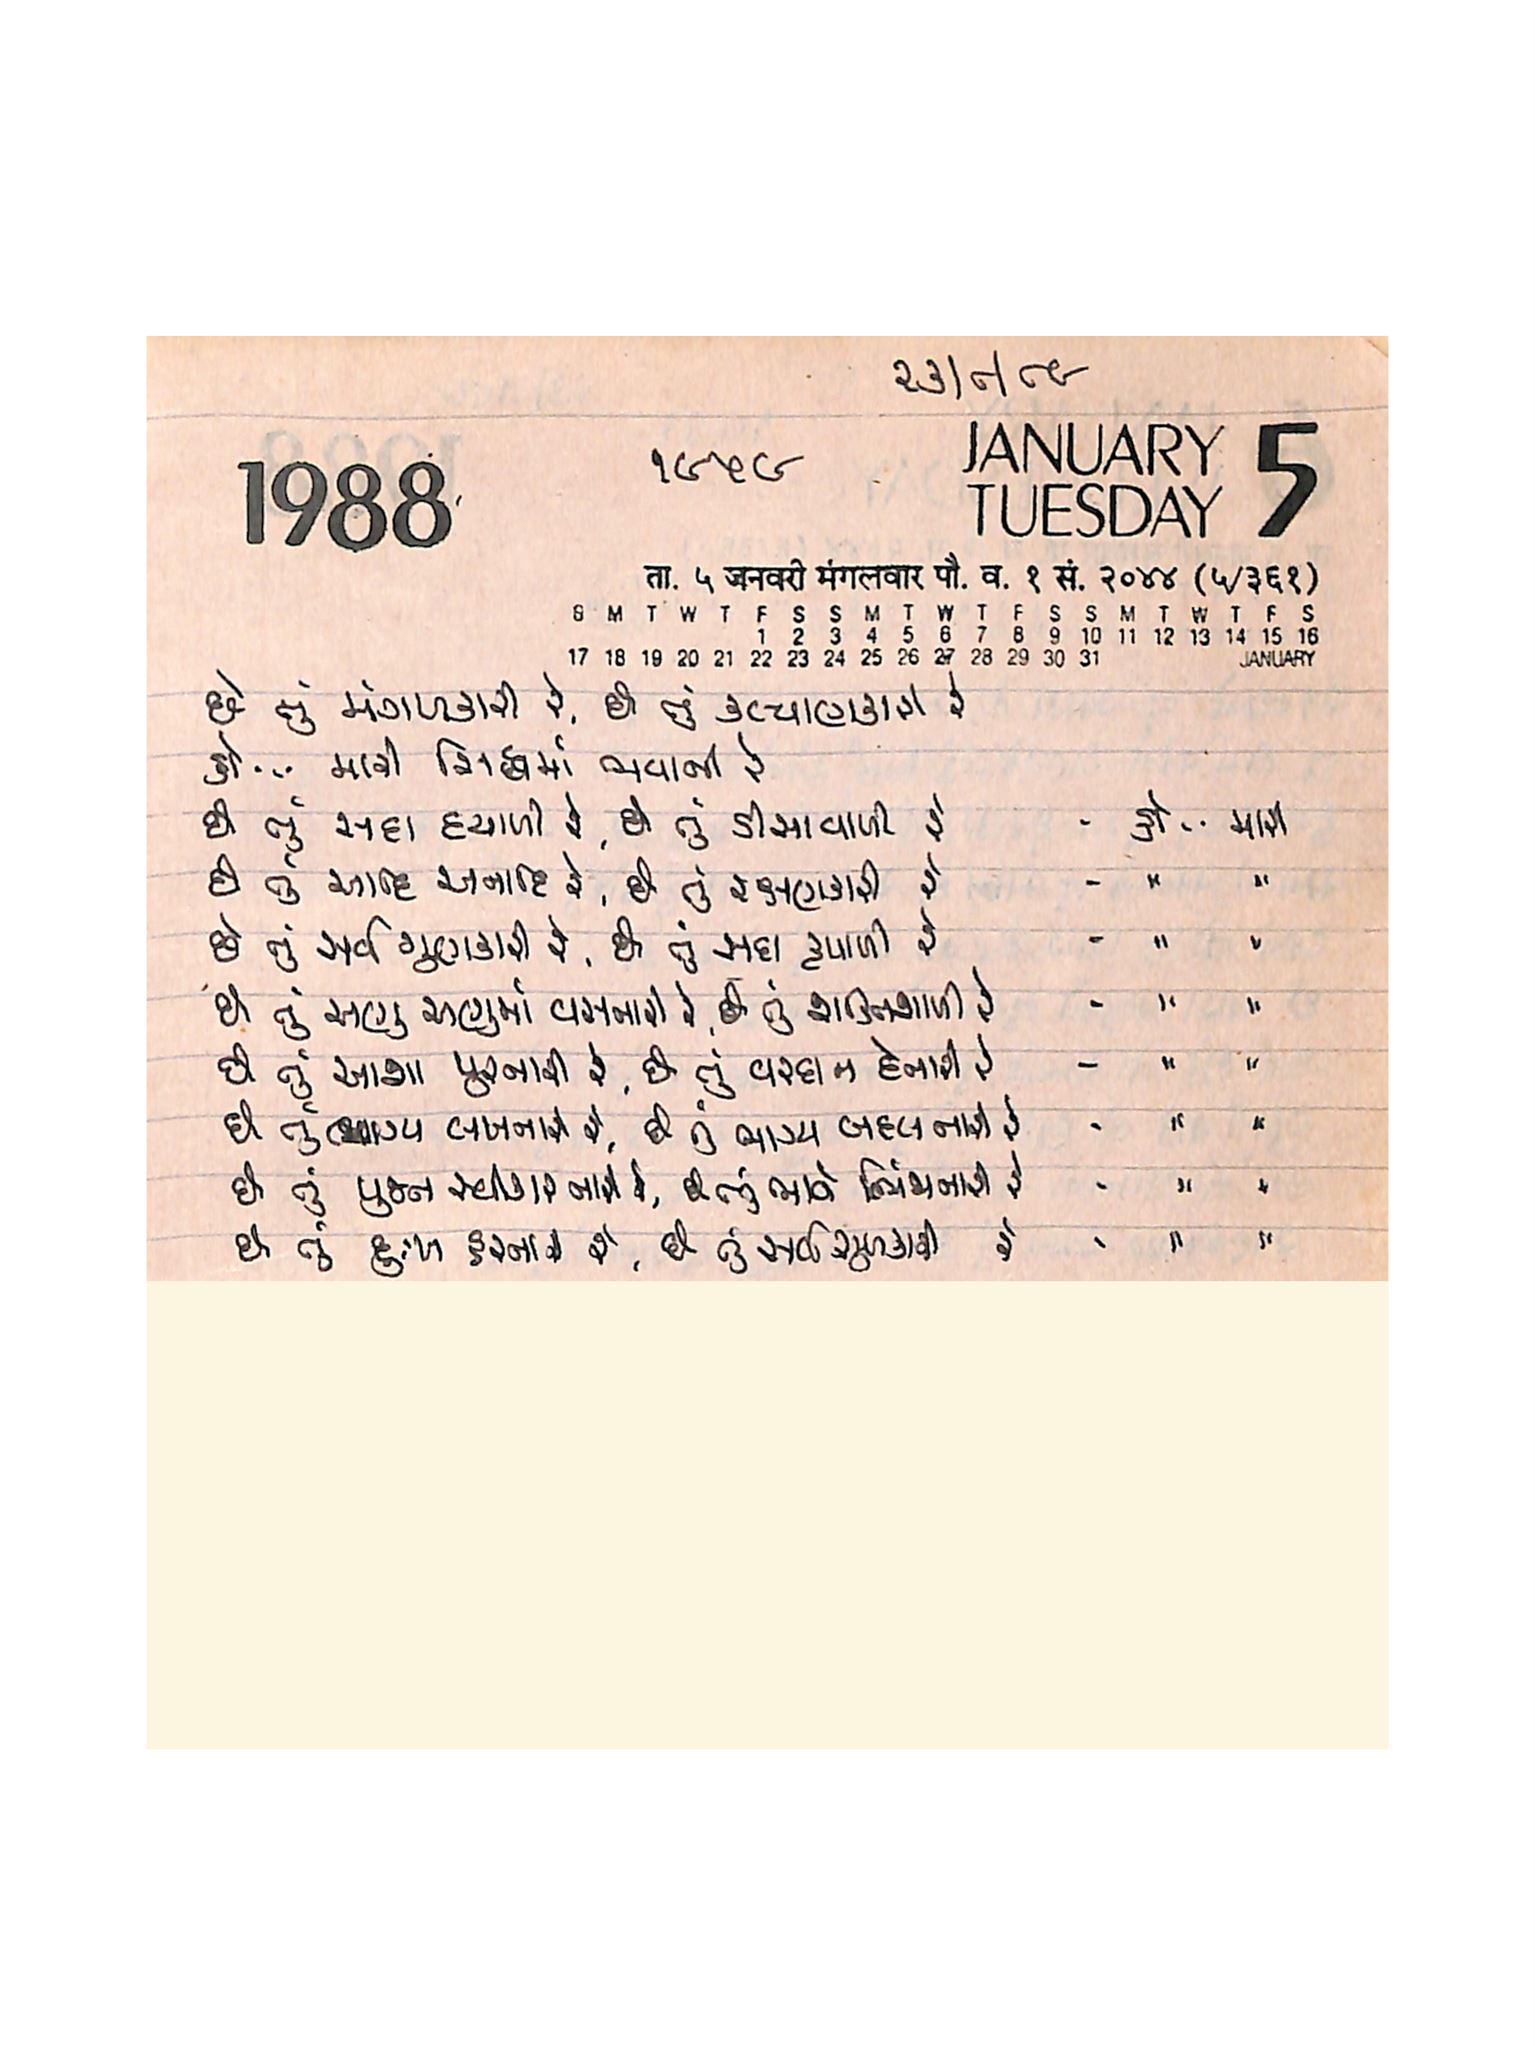 ૨૩/૧/૮૯
1988
૧૯૫૯
JANUARY 5
TUESDAY
ता. ५ जनवरी मंगलवार पौ. व. १ सं. २०४४ (५/३६१)
S M T W T F S S M T W T F S S M T W T F S
1 2 3 4 5 6 7 8 9 10 11 12 13 14 15 16
17 18 19 20 21 22 23 24 25 26 27 28 29 30 31 JANUARY
છો તું મંગળકારી રે, છો તું કલ્યાણકારી રે
હો... મારી સિધ્ધમાં ભવાની રે
છો તું સદા દયાળી રે, છો તું ડીસાવાળી રે - હો... મારી
છો તું આદિ અનાદિ રે, છો તું રક્ષણકારી રે - " "
છો તું સર્વ ગુણકારી રે, છો તું સદા કૃપાળી રે - " "
છો તું અણુ અણુમાં વસનારી રે, છો તું શક્તિશાળી રે - " "
છો તું આશા પુરનારી રે, છો તું વરદાન દેનારી રે - " "
છો તું ભાગ્ય લખનારી રે, છો તું ભાગ્ય બદલનારી રે - " "
છો તું પુજન સ્વીકારનારી રે, છો તું ભાવે નારી રે - " "
છો તું દુઃખ હરનારી રે, છો તું સર્વ સુખકારી રે - " "